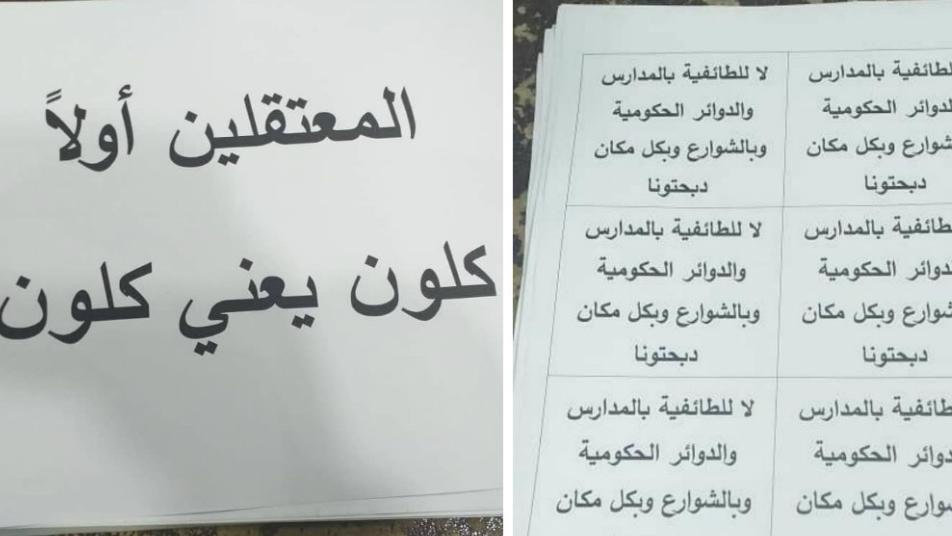 المعتقلين أولاً
كلون يعني كلون
لا للطائفية بالمدارس
والدوائر الحكومية
وبالشوارع وبكل مكان
دبحتونا
لا للطائفية بالمدارس
والدوائر الحكومية
وبالشوارع وبكل مكان
دبحتونا
لا للطائفية بالمدارس
والدوائر الحكومية
وبالشوارع وبكل مكان
بالمدارس
الحكومية
وبكل مكان
دبحتونا
بالمدارس
الحكومية
وبكل مكان
دبحتونا
بالمدارس
الحكومية
وبكل مكان